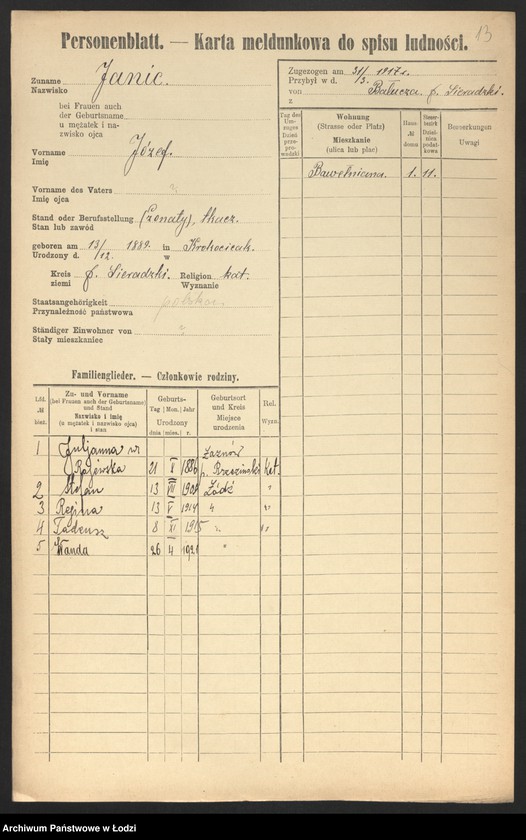 13
Personenblatt. — Karta meldunkowa do spisu ludności.
Zuname Janic.
Nazwisko
bei Frauen auch
der Geburtsname
u mężatek i na-
zwisko ojca
Vorname Józef.
Imię
Vorname des Vaters
Imię ojca
Stand oder Berufsstellung (Żonaty), tkacz.
Stan lub zawód
geboren am 13/ 1889. in
Urodzony d. /12. w
Kreis p. Sieradzki. Religion kat.
ziemi Wyznanie
Staatsangehörigkeit polska
Przynależność państwowa
Ständiger Einwohner von
Stały mieszkaniec
Zugezogen am 31/ 1917 r.
Przybył w d. /3.
von Bałucza p. Sieradzki.
z
Tag des Um- zuges Dzień prze- prowadzki
Wohnung (Strasse oder Platz) Mieszkanie (ulica lub plac)
Haus- № domu
Steuer- bezirk Dziel- nica podat- kowa
Bemerkungen Uwagi
Bawełniana. 1. 11.
Familienglieder. — Członkowie rodziny.
Lfd. № bież.
Zu- und Vorname (bei Frauen auch der Geburtsname) und Stand Nazwisko i imię (u mężatek i nazwisko ojca) i stan
Geburts- Tag Mon. Jahr Urodzony dnia mies. r.
Geburtsort und Kreis Miejsce urodzenia
Rel. Wyzn.
1 Juljanna
21 V 1886 kat.
2 Stefan 13 VII Łódź "
3 Regina 13 V 1914 " "
4 Tadeusz 8 XI 1915 " "
5 Wanda 26 4 1921 "
Archiwum Państwowe w Łodzi